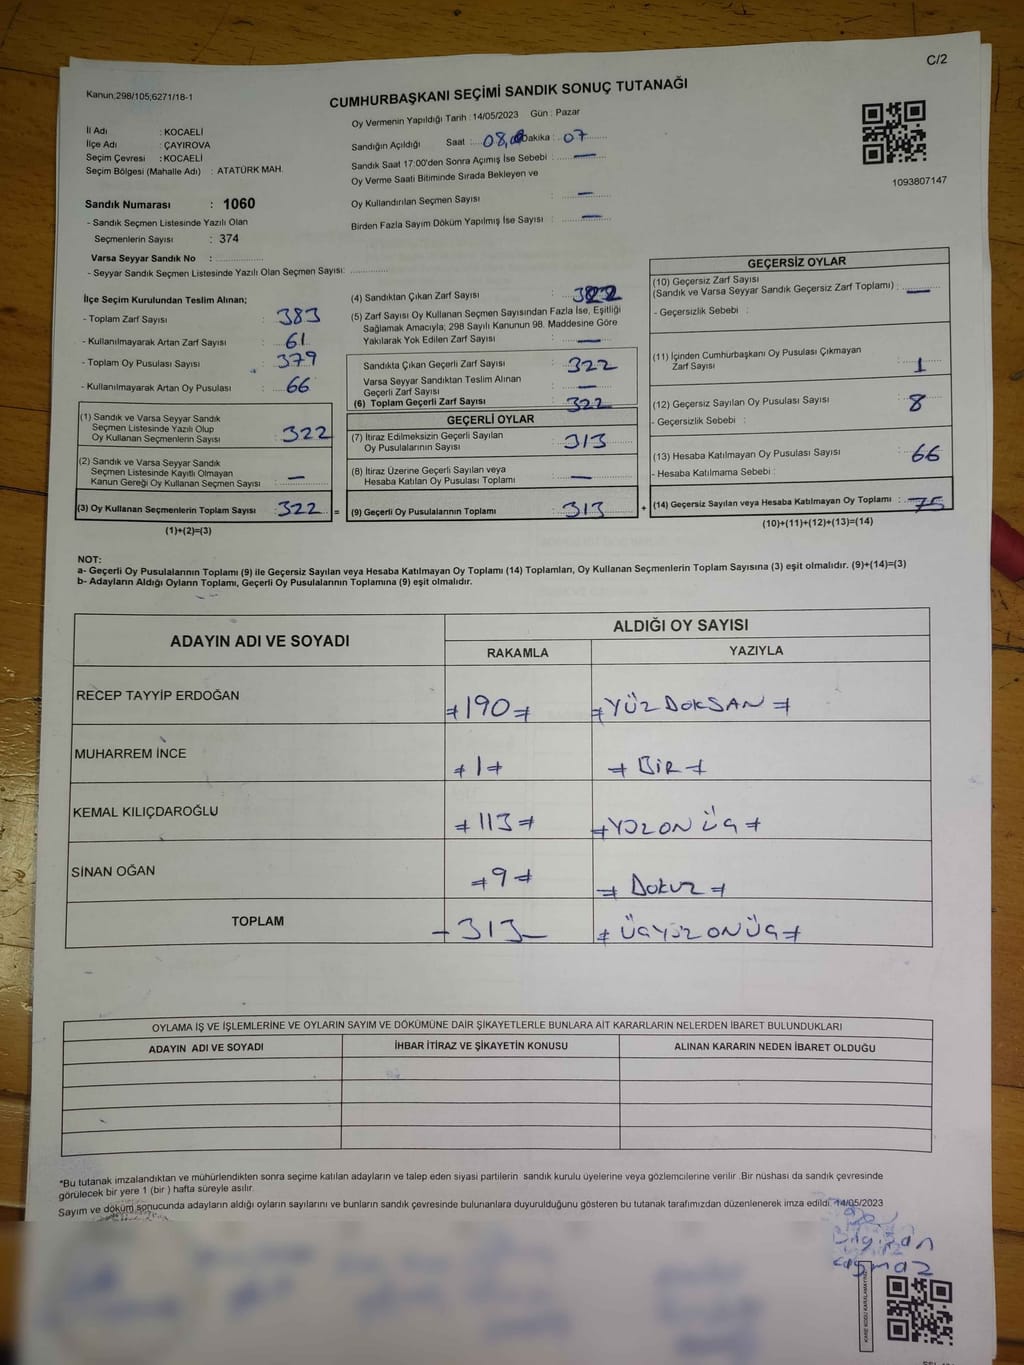 C/2
Kanun;298/105;6271/18-1
CUMHURBAŞKANI SEÇİMİ SANDIK SONUÇ TUTANAĞI
Oy Vermenin Yapıldığı Tarih : 14/05/2023 Gün : Pazar
İl Adı : KOCAELİ
İlçe Adı : ÇAYIROVA
Seçim Çevresi : KOCAELİ
Seçim Bölgesi (Mahalle Adı) : ATATÜRK MAH.
Sandık Numarası : 1060
- Sandık Seçmen Listesinde Yazılı Olan
Seçmenlerin Sayısı : 374
Varsa Seyyar Sandık No :
- Seyyar Sandık Seçmen Listesinde Yazılı Olan Seçmen Sayısı:
Sandığın Açıldığı Saat : 08, Dakika : 07
Sandık Saat 17:00'den Sonra Açımış İse Sebebi : —
Oy Verme Saati Bitiminde Sırada Bekleyen ve
Oy Kullandırılan Seçmen Sayısı : —
Birden Fazla Sayım Döküm Yapılmış İse Sayısı : —
1093807147
İlçe Seçim Kurulundan Teslim Alınan;
- Toplam Zarf Sayısı : 383
- Kullanılmayarak Artan Zarf Sayısı : 61
- Toplam Oy Pusulası Sayısı : 379
- Kullanılmayarak Artan Oy Pusulası : 66
(1) Sandık ve Varsa Seyyar Sandık
Seçmen Listesinde Yazılı Olup
Oy Kullanan Seçmenlerin Sayısı : 322
(2) Sandık ve Varsa Seyyar Sandık
Seçmen Listesinde Kayıtlı Olmayan
Kanun Gereği Oy Kullanan Seçmen Sayısı : —
(3) Oy Kullanan Seçmenlerin Toplam Sayısı : 322 =
(1)+(2)=(3)
(4) Sandıktan Çıkan Zarf Sayısı : 322
(5) Zarf Sayısı Oy Kullanan Seçmen Sayısından Fazla İse, Eşitliği
Sağlamak Amacıyla; 298 Sayılı Kanunun 98. Maddesine Göre
Yakılarak Yok Edilen Zarf Sayısı : —
Sandıkta Çıkan Geçerli Zarf Sayısı : 322
Varsa Seyyar Sandıktan Teslim Alınan
Geçerli Zarf Sayısı : —
(6) Toplam Geçerli Zarf Sayısı : 322
GEÇERLİ OYLAR
(7) İtiraz Edilmeksizin Geçerli Sayılan
Oy Pusulalarının Sayısı : 313
(8) İtiraz Üzerine Geçerli Sayılan veya
Hesaba Katılan Oy Pusulası Toplamı : —
(9) Geçerli Oy Pusulalarının Toplamı : 313 +
GEÇERSİZ OYLAR
(10) Geçersiz Zarf Sayısı
(Sandık ve Varsa Seyyar Sandık Geçersiz Zarf Toplamı) : —
- Geçersizlik Sebebi :
(11) İçinden Cumhurbaşkanı Oy Pusulası Çıkmayan
Zarf Sayısı : 1
(12) Geçersiz Sayılan Oy Pusulası Sayısı : 8
- Geçersizlik Sebebi :
(13) Hesaba Katılmayan Oy Pusulası Sayısı : 66
- Hesaba Katılmama Sebebi :
(14) Geçersiz Sayılan veya Hesaba Katılmayan Oy Toplamı : 75
(10)+(11)+(12)+(13)=(14)
NOT:
a- Geçerli Oy Pusulalarının Toplamı (9) ile Geçersiz Sayılan veya Hesaba Katılmayan Oy Toplamı (14) Toplamları, Oy Kullanan Seçmenlerin Toplam Sayısına (3) eşit olmalıdır. (9)+(14)=(3)
b- Adayların Aldığı Oyların Toplamı, Geçerli Oy Pusulalarının Toplamına (9) eşit olmalıdır.
ADAYIN ADI VE SOYADI ALDIĞI OY SAYISI
RAKAMLA YAZIYLA
RECEP TAYYİP ERDOĞAN =190= =YÜZ DOKSAN=
MUHARREM İNCE =1= =BİR=
KEMAL KILIÇDAROĞLU =113= =YÜZ ON ÜÇ=
SİNAN OĞAN =9= =DOKUZ=
TOPLAM -313- =ÜÇYÜZ ON ÜÇ=
OYLAMA İŞ VE İŞLEMLERİNE VE OYLARIN SAYIM VE DÖKÜMÜNE DAİR ŞİKAYETLERLE BUNLARA AİT KARARLARIN NELERDEN İBARET BULUNDUKLARI
ADAYIN ADI VE SOYADI İHBAR İTİRAZ VE ŞİKAYETİN KONUSU ALINAN KARARIN NEDEN İBARET OLDUĞU
*Bu tutanak imzalandıktan ve mühürlendikten sonra seçime katılan adayların ve talep eden siyasi partilerin sandık kurulu üyelerine veya gözlemcilerine verilir .Bir nüshası da sandık çevresinde
görülecek bir yere 1 (bir ) hafta süreyle asılır.
Sayım ve döküm sonucunda adayların aldığı oyların sayılarını ve bunların sandık çevresinde bulunanlara duyurulduğunu gösteren bu tutanak tarafımızdan düzenlenerek imza edildi. 14/05/2023